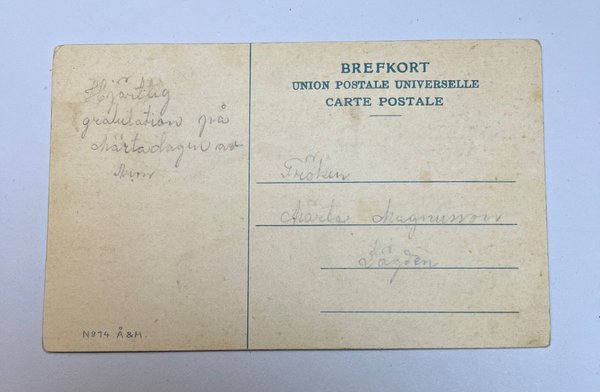 BREFKORT
UNION POSTALE UNIVERSELLE
CARTE POSTALE
Hjärtlig
gratulation på
Märtadagen av
Fröken
Märta Magnusson
Nº 14 Å & H.